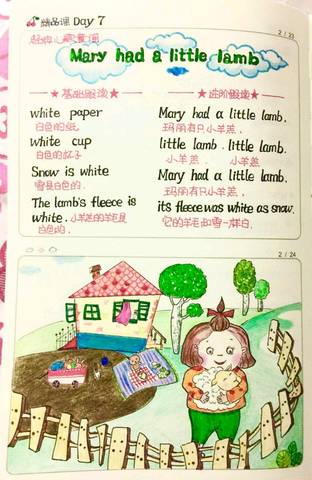 精品课 Day 7
2 / 23
经典儿歌童谣
Mary had a little lamb
★基础跟读★
white paper
白色的纸
white cup
白色的杯子
Snow is white
雪是白色的.
The lamb's fleece is
white. 小羊羔的羊毛是
白色的.
★进阶跟读★
Mary had a little lamb.
玛丽有只小羊羔.
little lamb. little lamb.
小羊羔. 小羊羔
Mary had a little lamb.
玛丽有只小羊羔.
its fleece was white as snow.
它的羊毛如雪一样白.
2 / 24